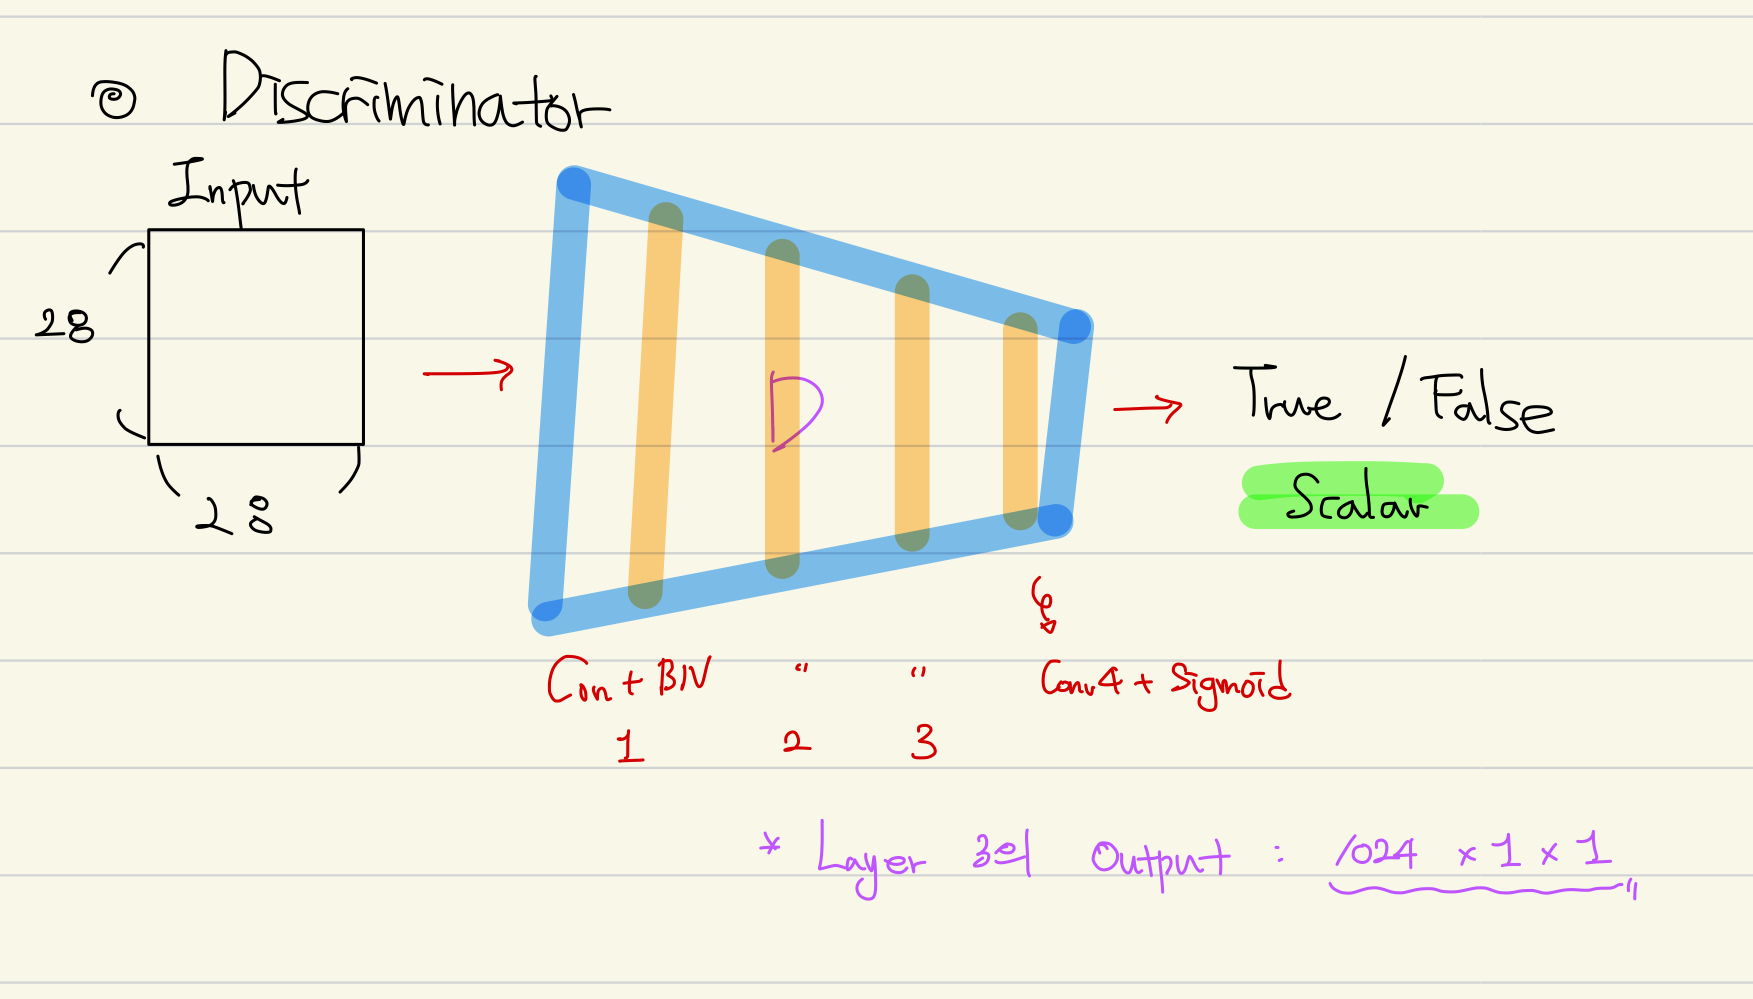 Discriminator
Input
28
28
D
True / False
Scalar
Con + BN " " Conv4 + Sigmoid
1 2 3
* Layer 3의 Output : 1024 x 1 x 1 "